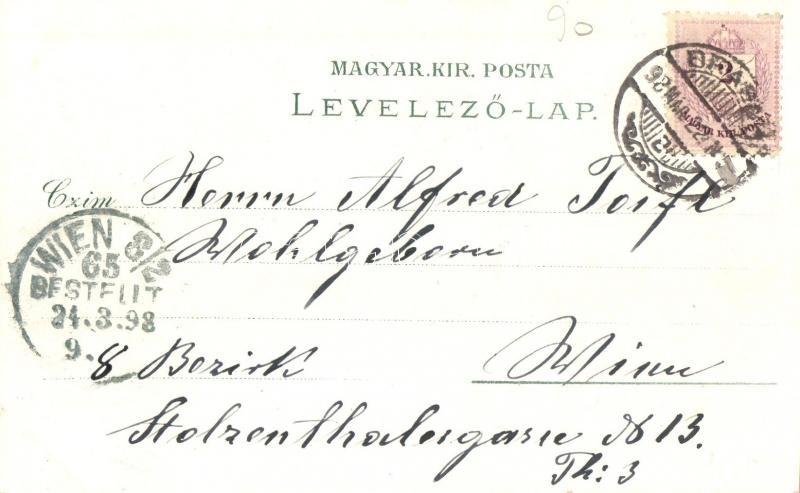 90
MAGYAR.KIR. POSTA
LEVELEZŐ-LAP.
2
MAGYAR KIR. POSTA
98 MÁR
Czim Herrn Alfred
Wohlgeborn
WIEN 8/2
65
BESTELLT
24.3.98
9.
8 Bezirk Wien
Stolzenthalergasse N 13.
Th: 3